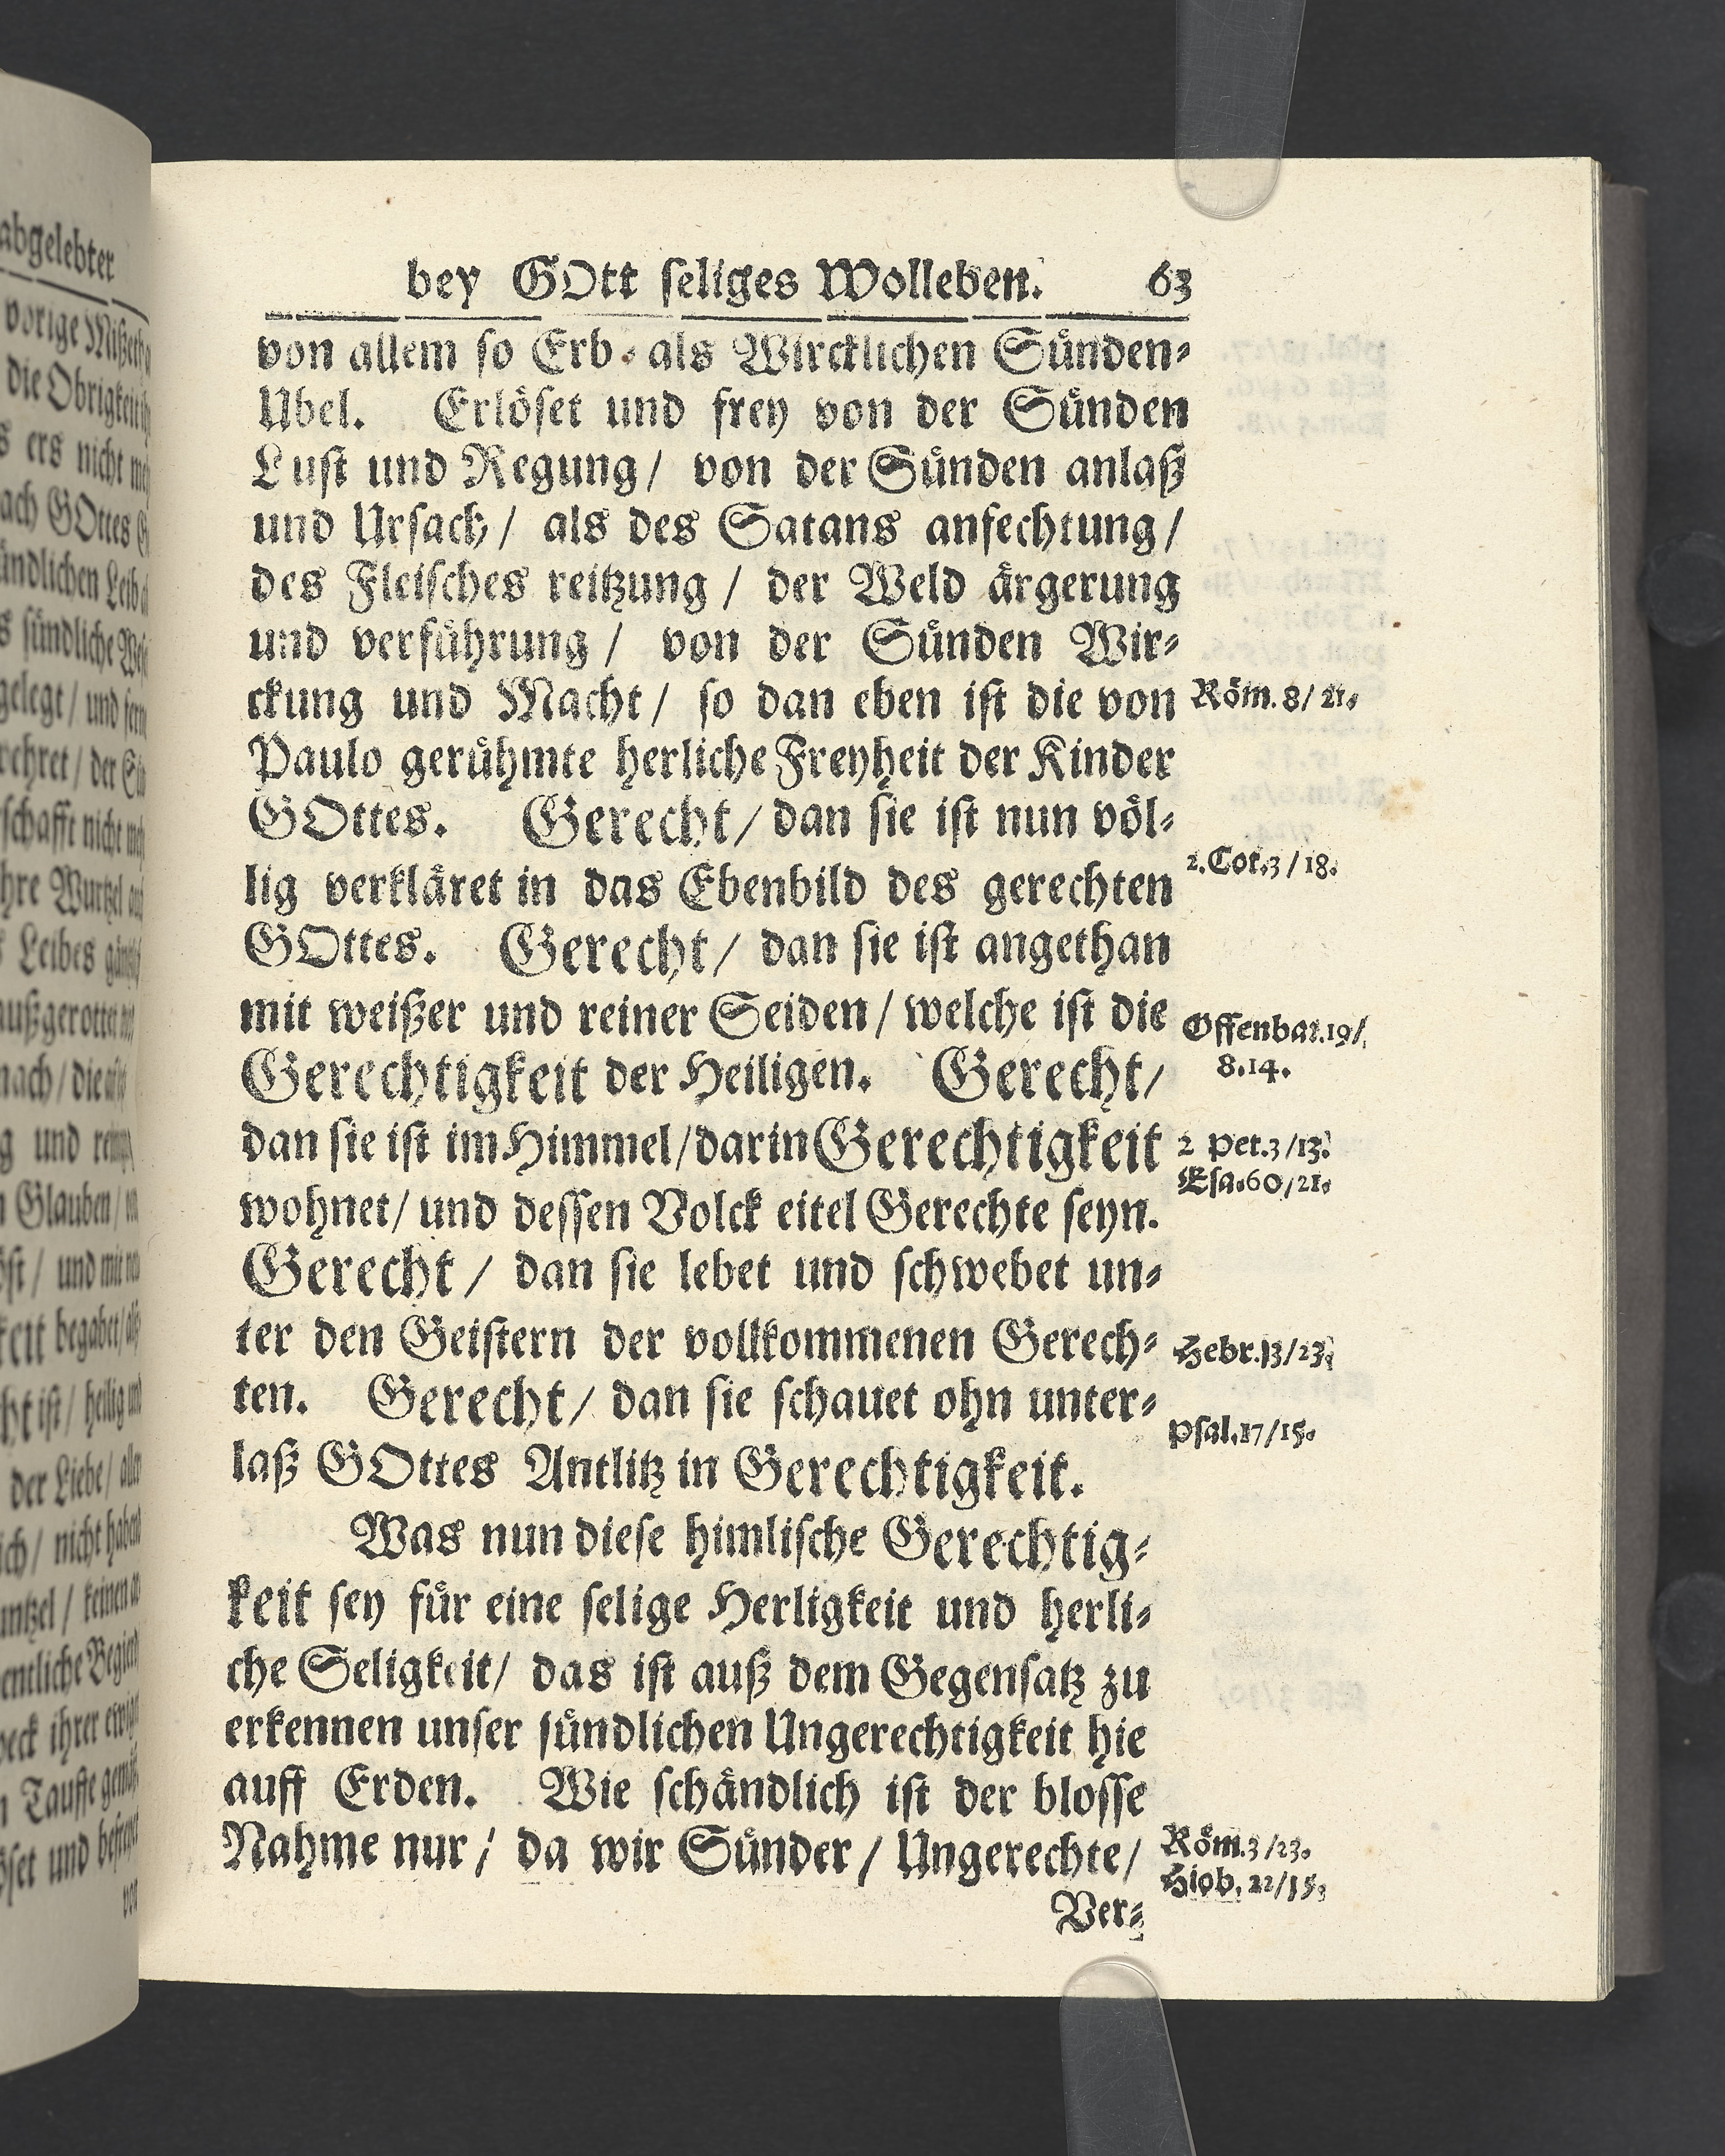 bey GOtt seliges Wolleben. 63
von allem so Erb- als Wircklichen Sünden-
Ubel. Erlöset und frey von der Sünden
Lust und Regung / von der Sünden anlaß
und Ursach / als des Satans anfechtung /
des Fleisches reitzung / der Weld ärgerung
und verführung / von der Sünden Wir-
ckung und Macht / so dan eben ist die von
Röm. 8/ 21.
Paulo gerühmte herliche Freyheit der Kinder
GOttes. Gerecht / dan sie ist nun völ-
lig verkläret in das Ebenbild des gerechten
2. Cor. 3 / 18.
GOttes. Gerecht / dan sie ist angethan
mit weißer und reiner Seiden / welche ist die
Offenbar. 19/
8.14.
Gerechtigkeit der Heiligen. Gerecht /
dan sie ist im Himmel / darin Gerechtigkeit
2 Pet. 3 / 13.
Esa. 60 / 21.
wohnet / und dessen Volck eitel Gerechte seyn.
Gerecht / dan sie lebet und schwebet un-
ter den Geistern der vollkommenen Gerech-
Hebr. 13 / 23.
ten. Gerecht / dan sie schauet ohn unter-
Psal. 17 / 15.
laß GOttes Antlitz in Gerechtigkeit.
Was nun diese himlische Gerechtig-
keit sey für eine selige Herligkeit und herli-
che Seligkeit / das ist auß dem Gegensatz zu
erkennen unser sündlichen Ungerechtigkeit hie
auff Erden. Wie schändlich ist der blosse
Nahme nur / da wir Sünder / Ungerechte /
Röm. 3 / 23.
Hiob. 22 / 15.
Ver-
abgelebter
vorige
die Obrigkeit
s ers nicht
ach GOttes
ündlichen Leib
s sündliche
gelegt / und
rehret / der
schafft nicht
hre Wurtzel
Leibes
außgerottet
nach / die
g und
Glauben /
/ und mit
keit begabet /
ist / heilig
der Liebe /
ich / nicht
/ keinen
entliche
ihrer
Tauffe
und
von